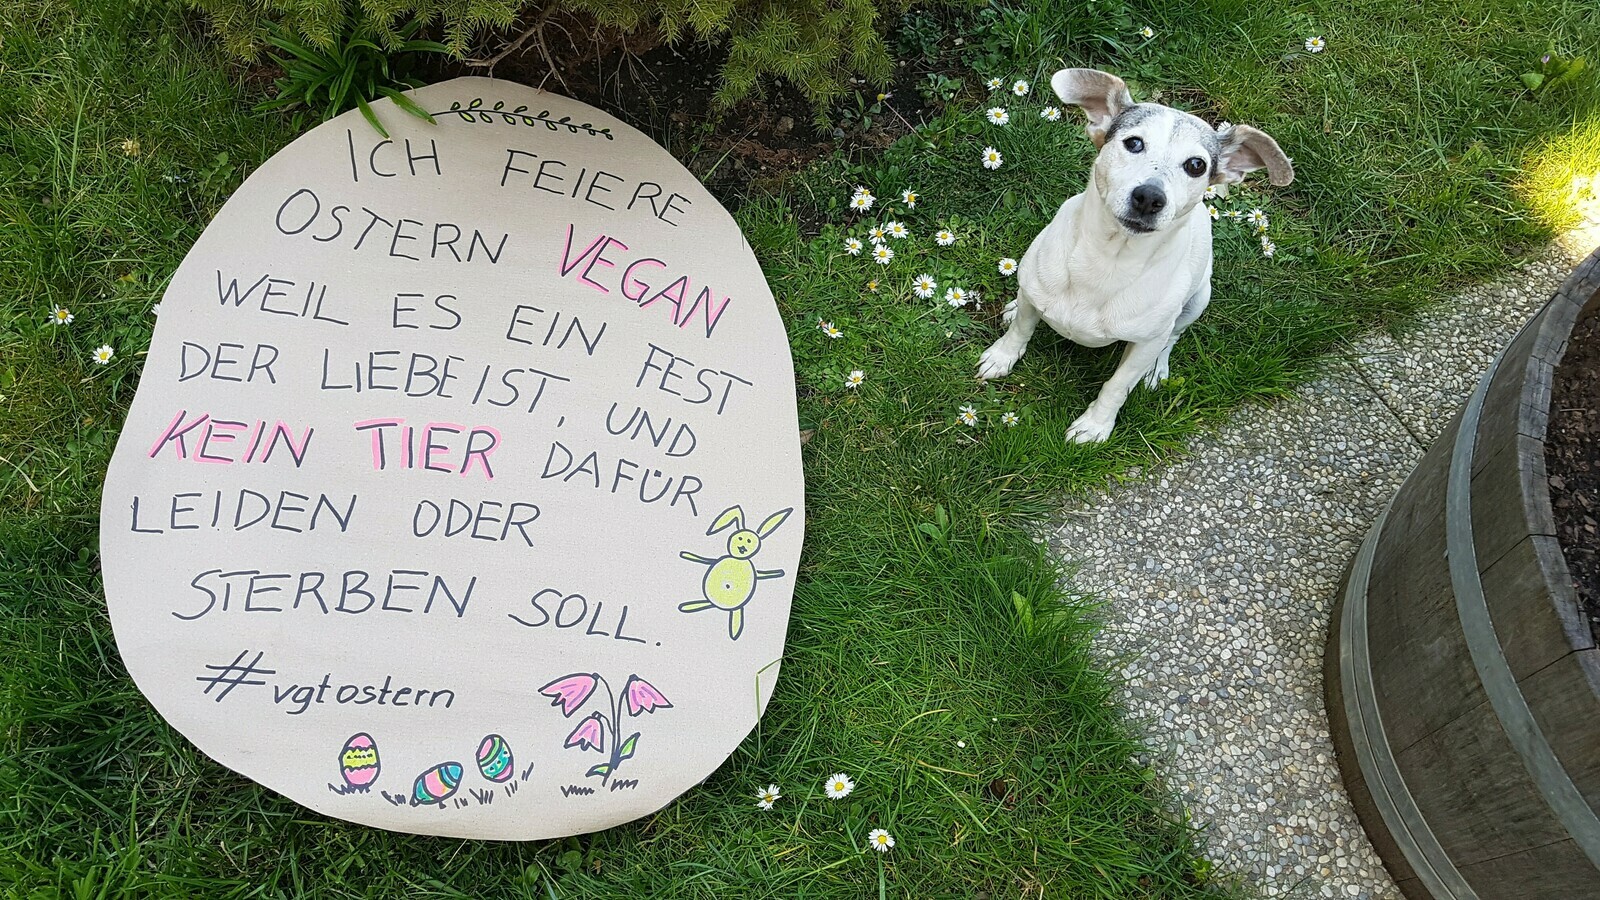 ICH FEIERE
OSTERN VEGAN
WEIL ES EIN FEST
DER LIEBE IST, UND
KEIN TIER DAFÜR
LEIDEN ODER
STERBEN SOLL.
#vgtostern